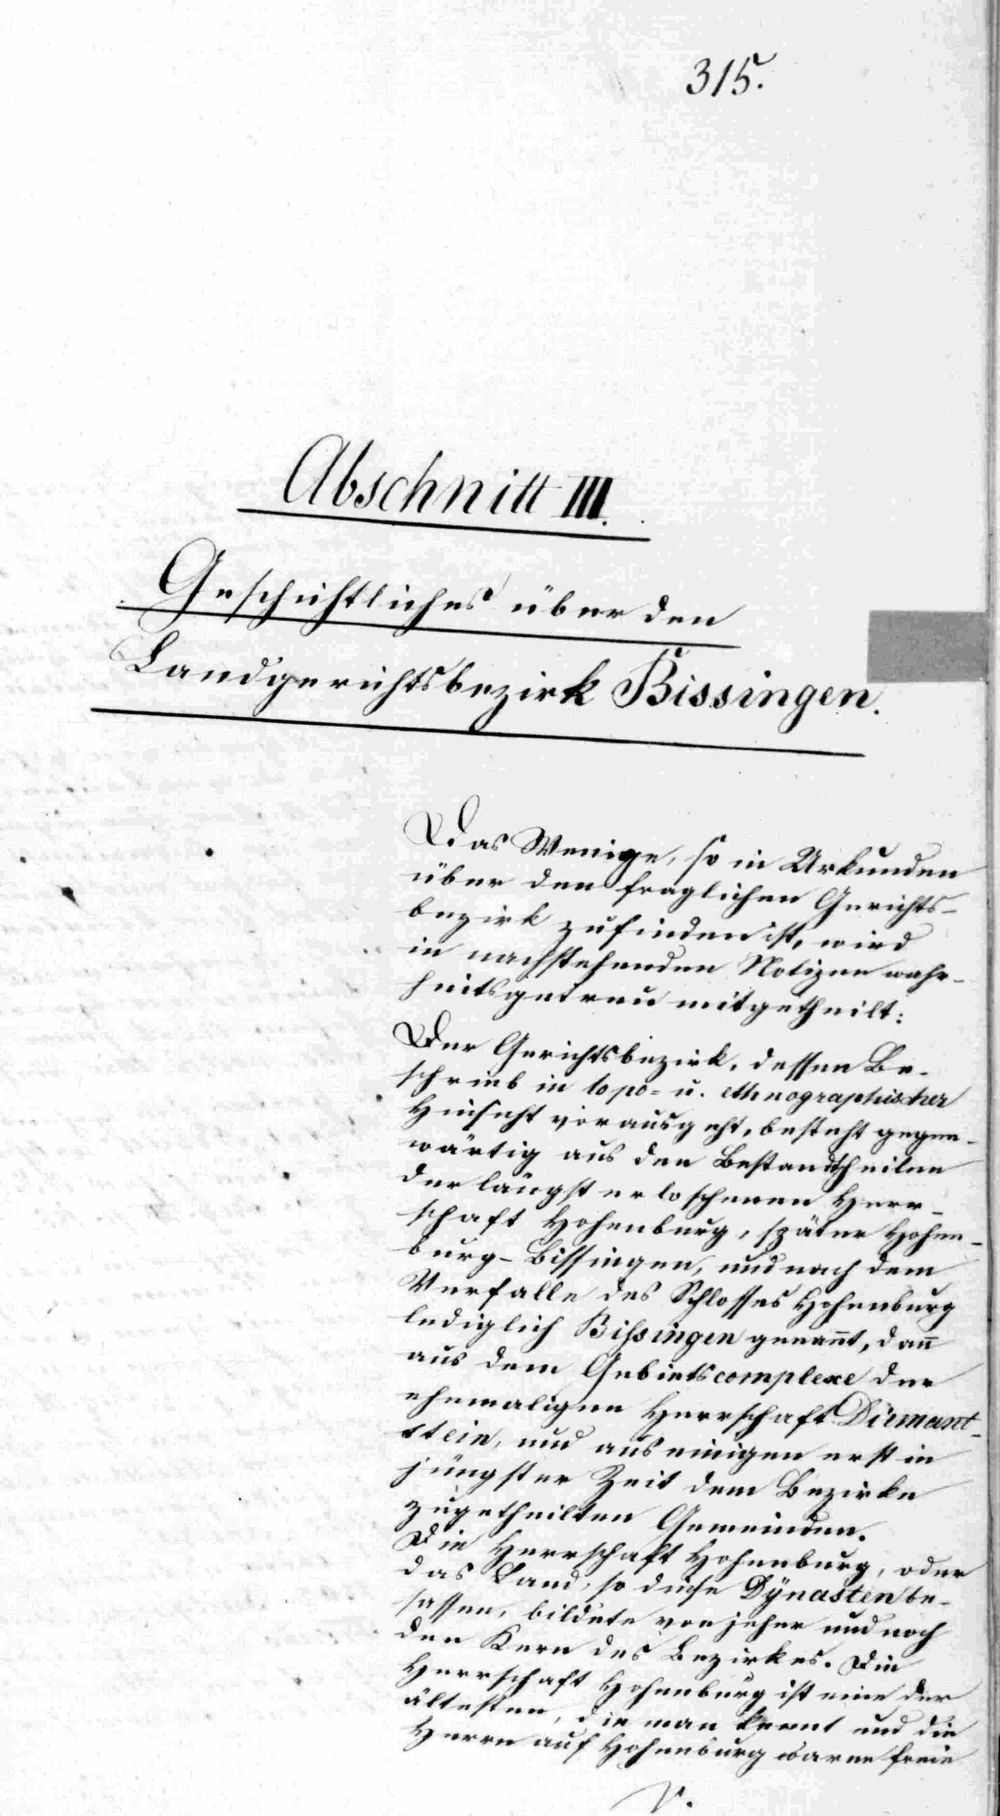 315.
Abschnitt III.
Geschichtliches über den
Landgerichtsbezirk Bissingen.
Das Wenige, so in Urkunden
über den fraglichen Gerichts-
bezirk zufinden ist, wird
in nachstehenden Notizen wahr-
heitsgetreu mitgetheilt:
Der Gerichtsbezirk, dessen Be-
schrieb in topo- u. ethnographischer
Hinsicht vorausgeht, besteht gegen-
wärtig aus den Bestandtheilen
der längst erloschenen Herr-
schaft Hohenburg, später Hohen-
burg-Bissingen, und nach dem
Verfalle des Schlosses Hohenburg
lediglich Bissingen genañt, dañ
aus dem Gebietscomplexe der
ehemaligen Herrschaft Diemant-
stein, und aus einigen erst in
jüngster Zeit dem Bezirke
zugetheilten Gemeinden.
Die Herrschaft Hohenburg, oder
das Land, so diese Dÿnasten be-
sassen, bildete von jeher und noch
den Kern des Bezirkes. Die
Herrschaft Hohenburg ist eine der
ältesten, die man kennt und die
Herrn auf Hohenburg waren freie